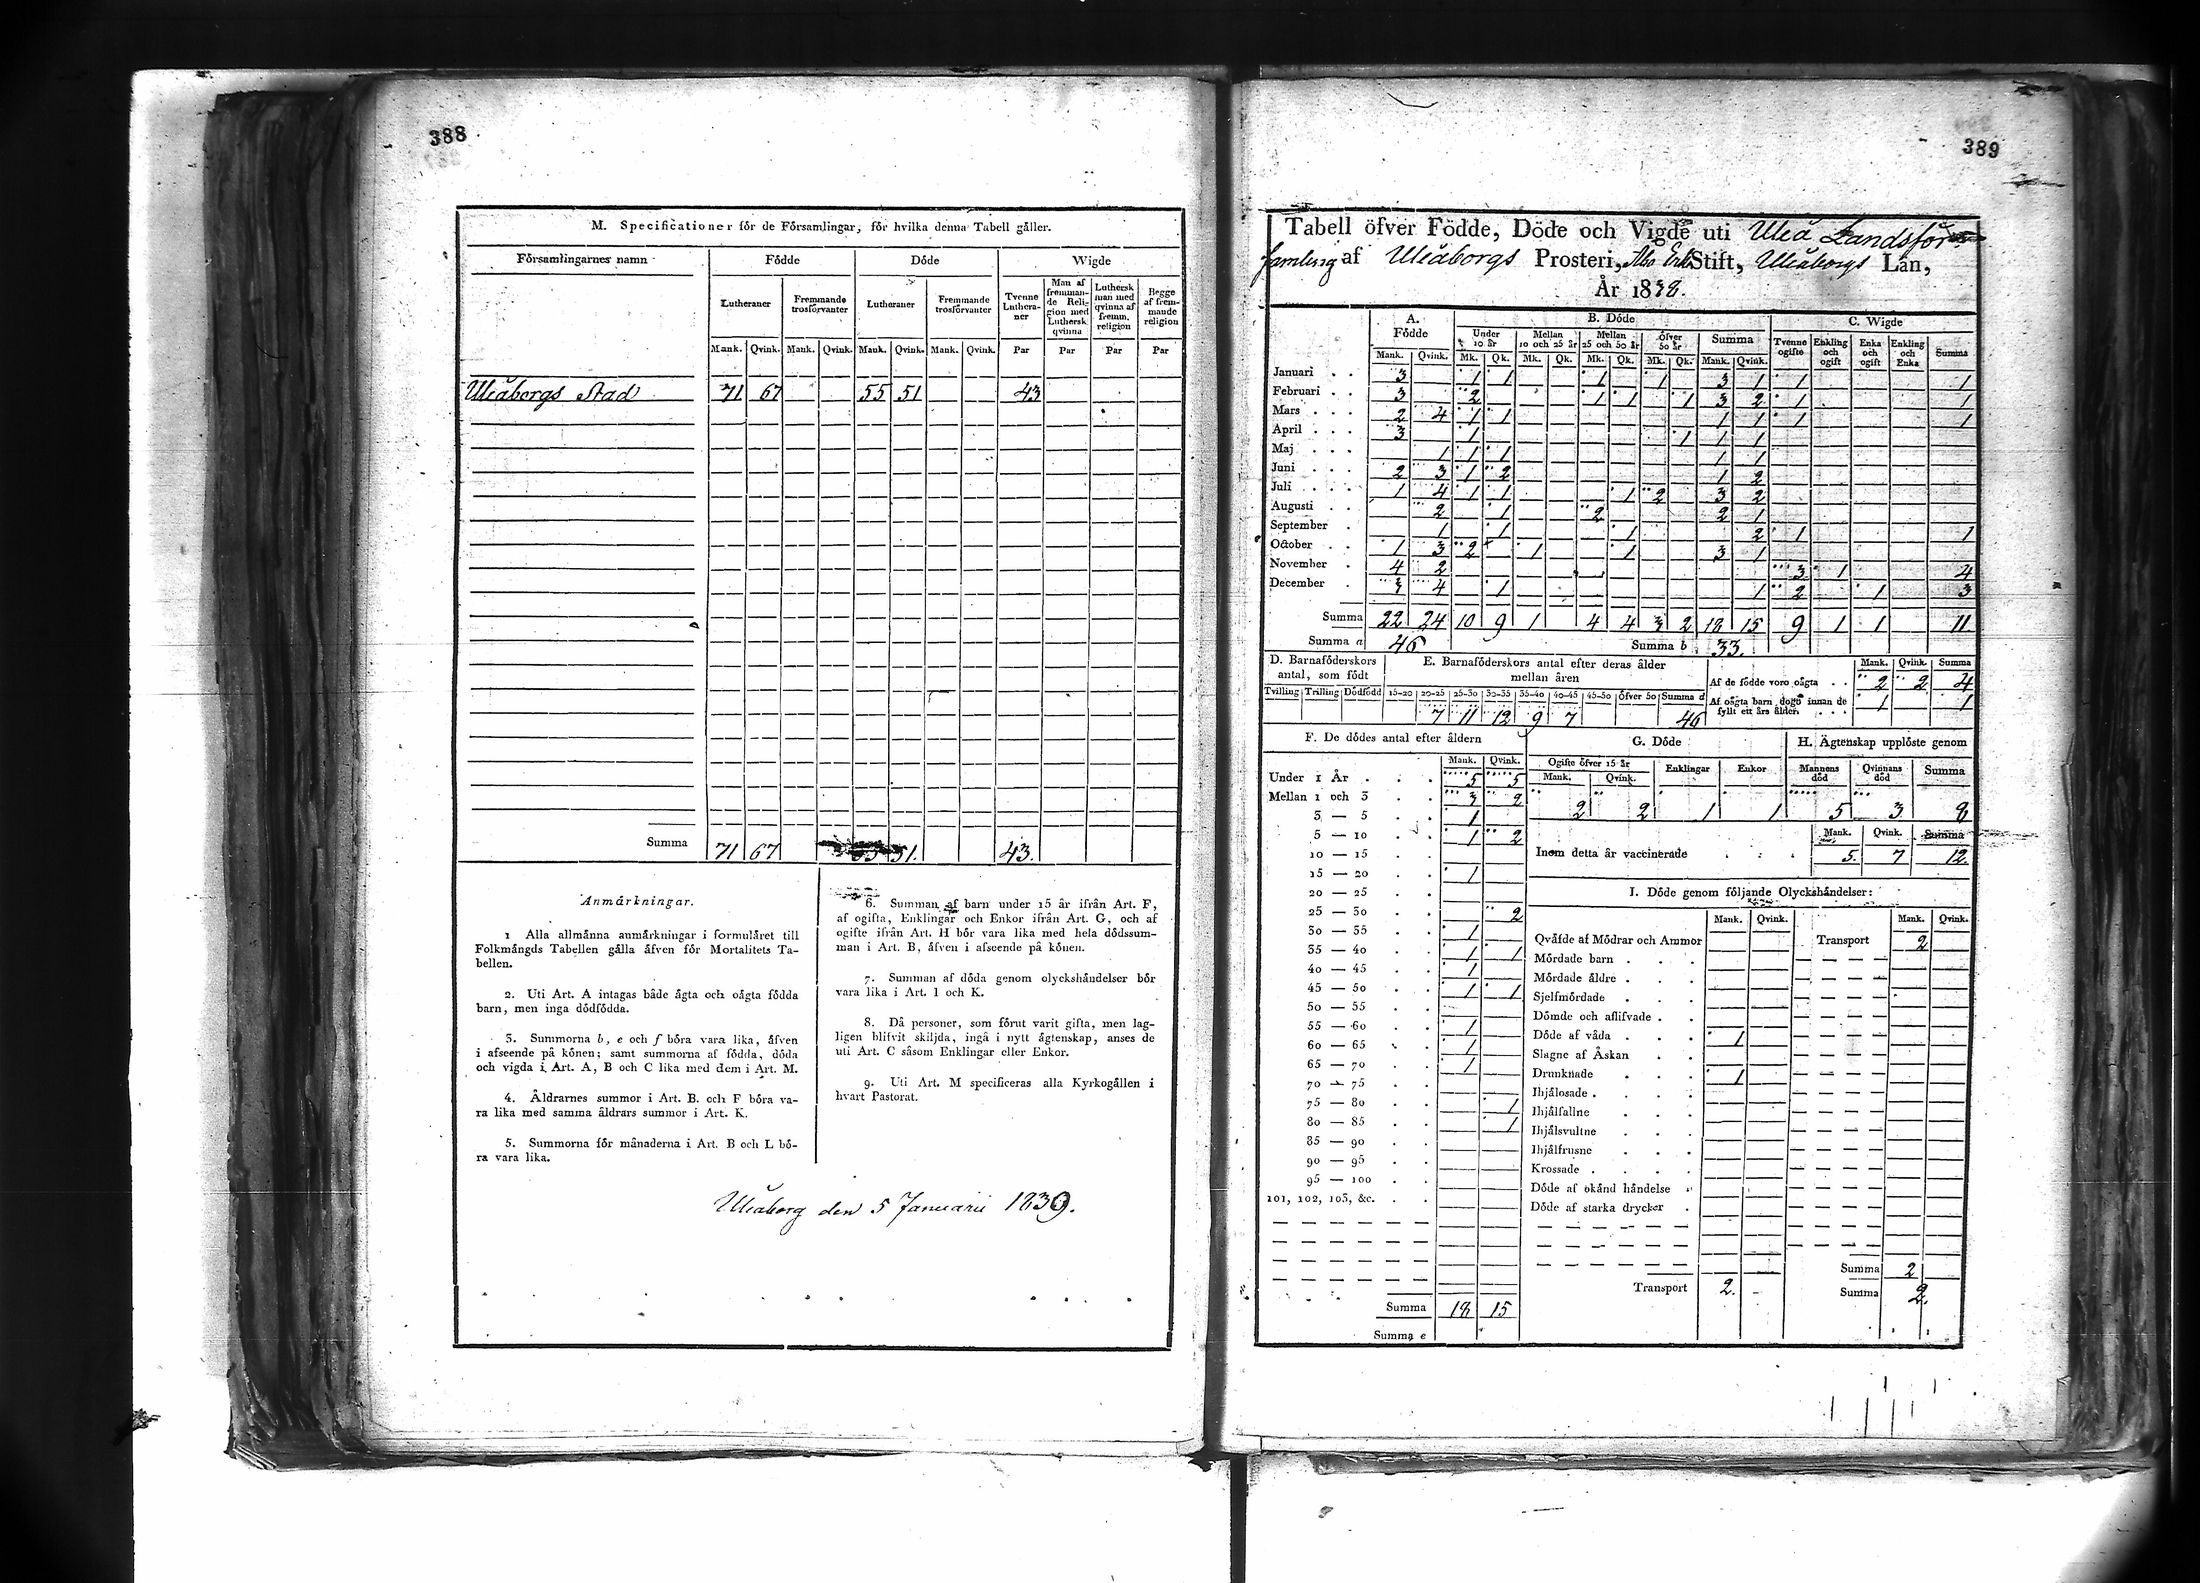 388
M. Specificationer för de Församlingar, för hvilka denna Tabell gäller.
Församlingarnes namn Födde Döde Wigde
Lutheraner Fremmande trosförvanter Lutheraner Fremmande trosförvanter Tvenne Lutheraner Man af fremmande Religion med Luthersk qvinna Luthersk man med qvinna af fremm. religion Begge af fremmande religion
Mank. Qvink. Mank. Qvink. Mank. Qvink. Mank. Qvink. Par Par Par Par
Uleåborgs Stad 71 67 55 51 43
Summa 71 67 55 51. 43.
Anmärkningar.
1 Alla allmänna anmärkningar i formuläret till
Folkmängds Tabellen gälla äfven för Mortalitets Ta-
bellen.
2. Uti Art. A intagas både ägta och oägta födda
barn, men inga dödfödda.
3. Summorna b, e och f böra vara lika, äfven
i afseende på könen; samt summorna af födda, döda
och vigda i Art. A, B och C lika med dem i Art. M.
4. Åldrarnes summor i Art. B. och F böra va-
ra lika med samma åldrars summor i Art. K.
5. Summorna för månaderna i Art. B och L bö-
ra vara lika.
6. Summan af barn under 15 år ifrån Art. F,
af ogifta, Enklingar och Enkor ifrån Art. G, och af
ogifte ifrån Art. H bör vara lika med hela dödssum-
man i Art. B, äfven i afseende på könen.
7. Summan af döda genom olyckshändelser bör
vara lika i Art. I och K.
8. Då personer, som förut varit gifta, men lag-
ligen blifvit skiljda, ingå i nytt ägtenskap, anses de
uti Art. C såsom Enklingar eller Enkor.
9. Uti Art. M specificeras alla Kyrkogällen i
hvart Pastorat.
Uleåborg den 5 Januarii 1839.
389
Tabell öfver Födde, Döde och Vigde uti Uleå Landsför-
samling af Uleåborgs Prosteri, Åbo Erke Stift, Uleåborgs Län,
År 1838.
A. Födde B. Döde C. Wigde
Under 10 år Mellan 10 och 25 år Mellan 25 och 50 år Öfver 50 år Summa Tvenne ogifte Enkling och ogift Enka och ogift Enkling och Enka Summa
Mank. Qvink. Mk. Qk. Mk. Qk. Mk. Qk. Mk. Qk. Mank. Qvink.
Januari 3 1 1 1 1 3 1 1 1
Februari 3 2 1 1 1 3 2 1 1
Mars 2 4 1 1 1 1 1 1
April 3 1 1 1 1
Maj 1 1 1 1 1
Juni 2 3 1 2 1 2
Juli 1 4 1 1 1 2 3 2
Augusti 2 1 2 2 1
September 1 1 1 2 1 1
October 1 3 2 1 1 3 1
November 4 2 3 1 4
December 3 4 1 1 2 1 3
Summa 22 24 10 9 1 4 4 3 2 18 15 9 1 1 11
Summa a 46 Summa b 33.
D. Barnaföderskors antal, som födt
E. Barnaföderskors antal efter deras ålder mellan åren
Mank. Qvink. Summa
Tvilling Trilling Dödfödd 15-20 20-25 25-30 30-35 35-40 40-45 45-50 öfver 50 Summa d
7 11 12 9 7 46
Af de födde voro oägta 2 2 4
Af oägta barn dogo innan de fyllt ett års ålder 1 1
F. De dödes antal efter åldern
Mank. Qvink.
Under 1 År 5 5
Mellan 1 och 3 3 2
3 — 5 1
5 — 10 1 2
10 — 15
15 — 20 1
20 — 25
25 — 30 2
30 — 35 1
35 — 40 1 1
40 — 45 1
45 — 50 1 1
50 — 55
55 — 60 1
60 — 65 1
65 — 70 1
70 — 75
75 — 80 1
80 — 85 1
85 — 90
90 — 95
95 — 100
101, 102, 103, &c.
Summa 18 15
Summa e
G. Döde
Ogifte öfver 15 år Enklingar Enkor
Mank. Qvink.
2 2 1 1
H. Ägtenskap upplöste genom
Mannens död Qvinnans död Summa
5 3 8
Mank. Qvink. Summa
Inom detta år vaccinerade 5. 7 12.
I. Döde genom följande Olyckshändelser:
Mank. Qvink. Mank. Qvink.
Qväfde af Mödrar och Ammor Transport 2
Mördade barn
Mördade äldre
Sjelfmördade
Dömde och aflifvade
Döde af våda 1
Slagne af Åskan
Drunknade 1
Ihjälosade
Ihjälfallne
Ihjälsvultne
Ihjälfrusne
Krossade
Döde af okänd händelse
Döde af starka drycker
Summa 2
Transport 2. Summa 2.